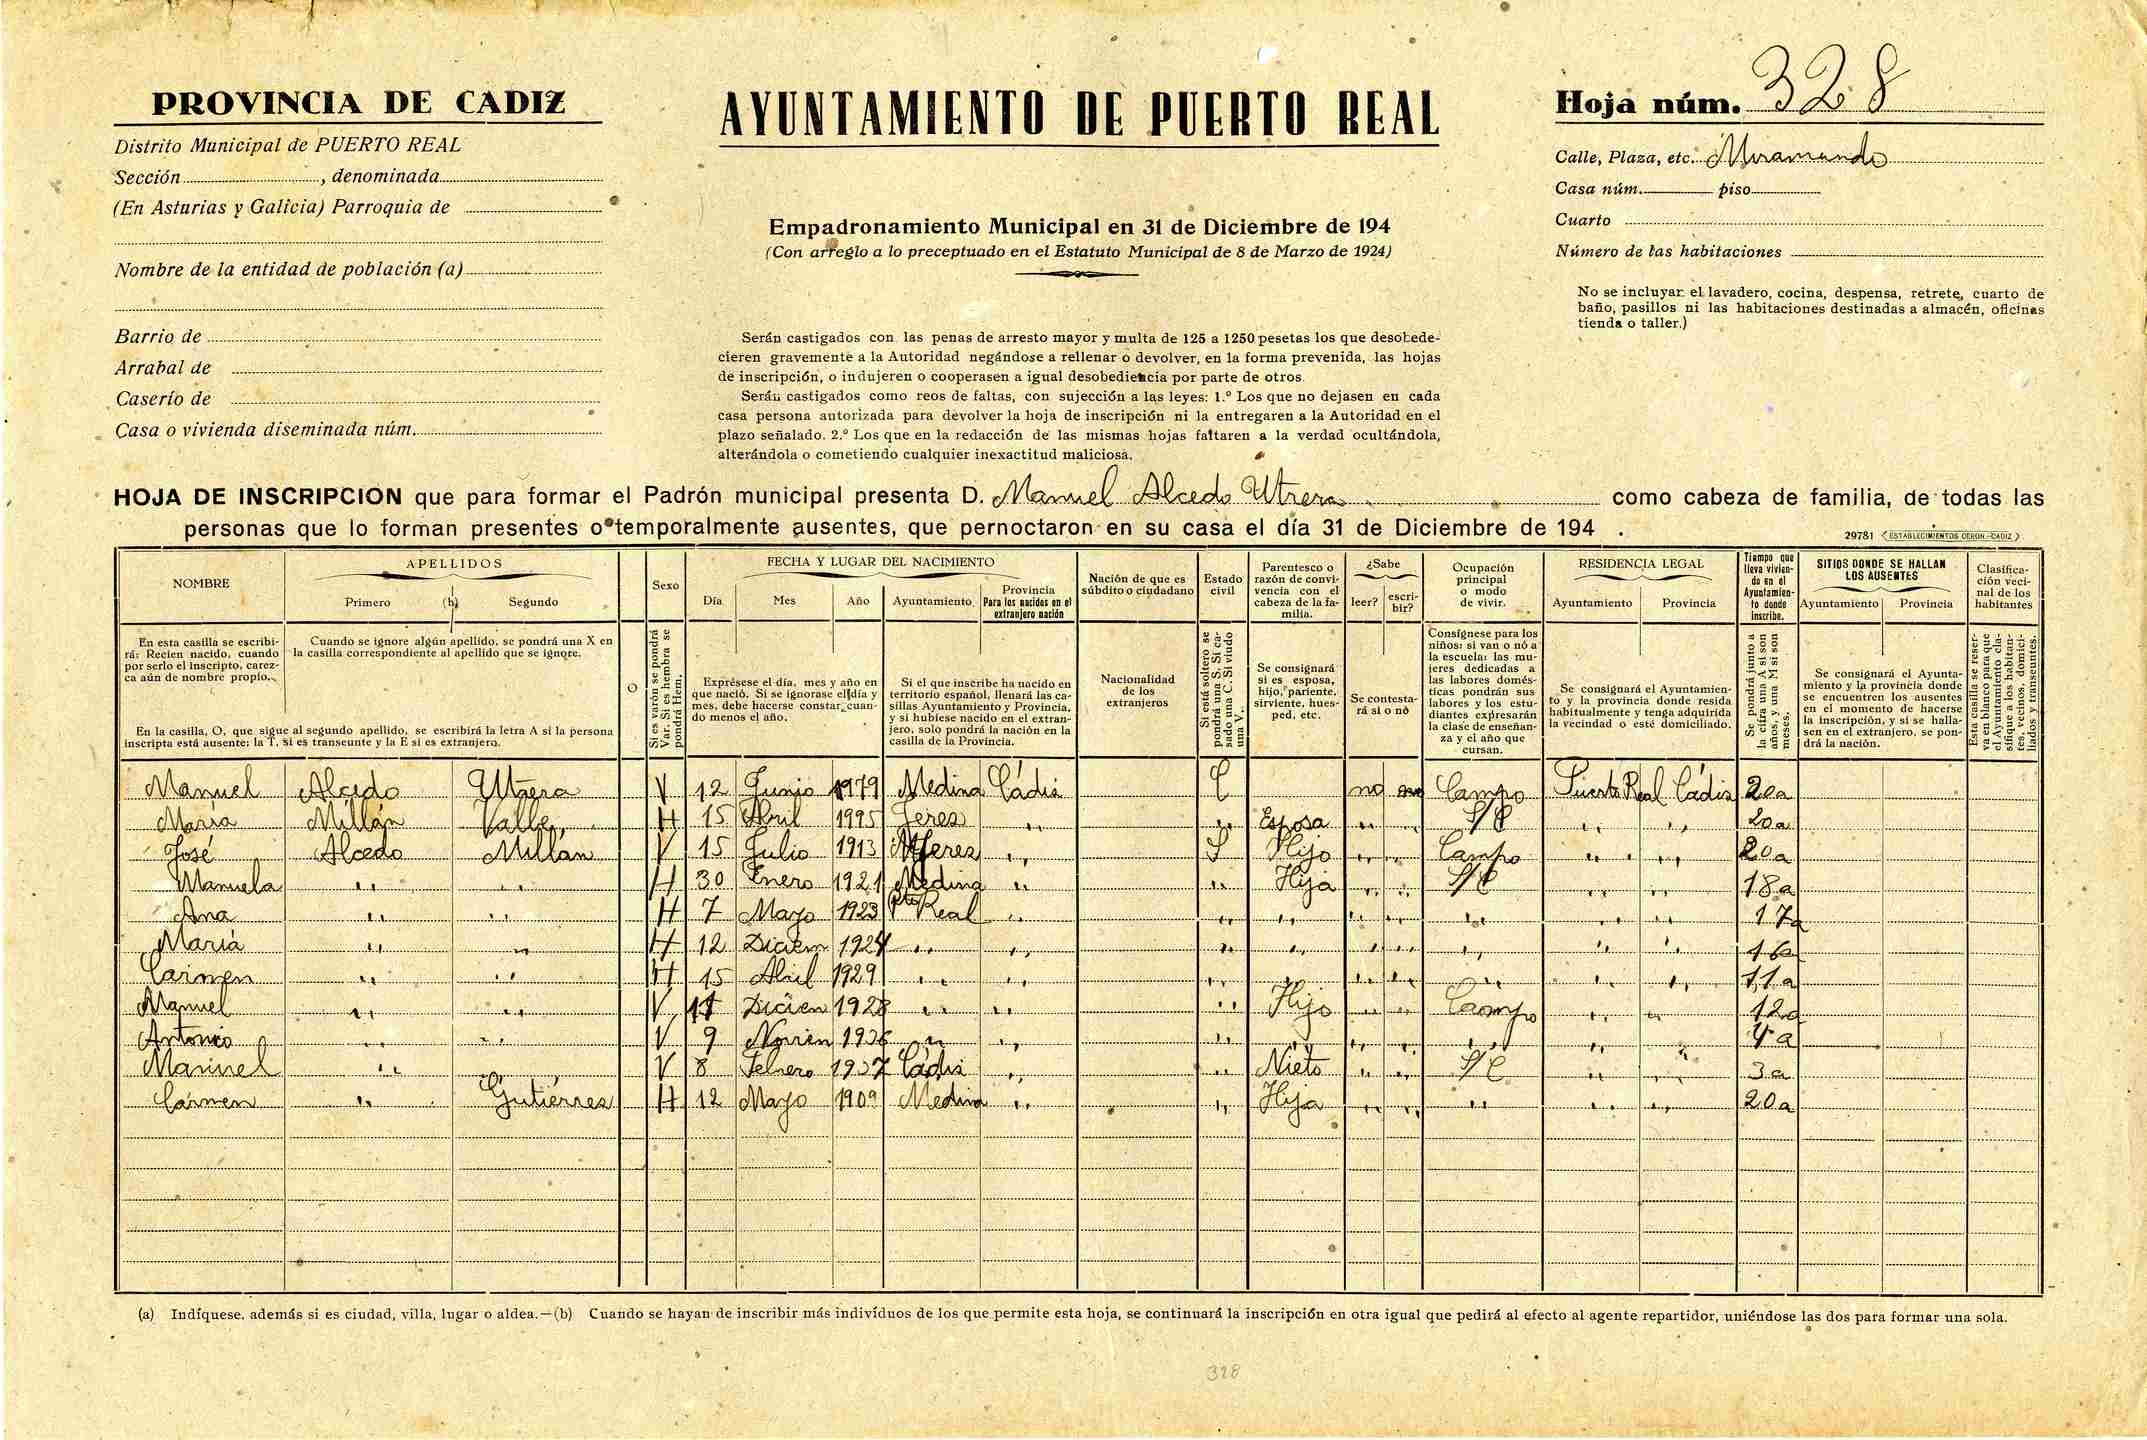 PROVINCIA DE CADIZ
Distrito Municipal de PUERTO REAL
Sección , denominada
(En Asturias y Galicia) Parroquia de
Nombre de la entidad de población (a)
Barrio de
Arrabal de
Caserío de
Casa o vivienda diseminada núm.
AYUNTAMIENTO DE PUERTO REAL
Empadronamiento Municipal en 31 de Diciembre de 194
(Con arreglo a lo preceptuado en el Estatuto Municipal de 8 de Marzo de 1924)
Serán castigados con las penas de arresto mayor y multa de 125 a 1250 pesetas los que desobede-
cieren gravemente a la Autoridad negándose a rellenar o devolver, en la forma prevenida, las hojas
de inscripción, o indujeren o cooperasen a igual desobediencia por parte de otros.
Serán castigados como reos de faltas, con sujección a las leyes: 1.º Los que no dejasen en cada
casa persona autorizada para devolver la hoja de inscripción ni la entregaren a la Autoridad en el
plazo señalado. 2.º Los que en la redacción de las mismas hojas faltaren a la verdad ocultándola,
alterándola o cometiendo cualquier inexactitud maliciosa.
Hoja núm. 328
Calle, Plaza, etc. Miramundo
Casa núm. piso
Cuarto
Número de las habitaciones
No se incluyan el lavadero, cocina, despensa, retrete, cuarto de
baño, pasillos ni las habitaciones destinadas a almacén, oficinas
tienda o taller.)
HOJA DE INSCRIPCION que para formar el Padrón municipal presenta D. Manuel Alcedo Utrera como cabeza de familia, de todas las
personas que lo forman presentes o temporalmente ausentes, que pernoctaron en su casa el día 31 de Diciembre de 194 .
29781 ESTABLECIMIENTOS CERON.-CADIZ
NOMBRE
APELLIDOS
Primero (b) Segundo
O
Sexo
FECHA Y LUGAR DEL NACIMIENTO
Día Mes Año Ayuntamiento
Provincia
Para los nacidos en el
extranjero nación
Nación de que es
súbdito o ciudadano
Estado
civil
Parentesco o
razón de convi-
vencia con el
cabeza de la fa-
milia.
¿Sabe
leer? escri-
bir?
Ocupación
principal
o modo
de vivir.
RESIDENCIA LEGAL
Ayuntamiento Provincia
Tiempo que
lleva vivien-
do en el
Ayuntamien-
to donde
inscribe.
SITIOS DONDE SE HALLAN
LOS AUSENTES
Ayuntamiento Provincia
Clasifica-
ción veci-
nal de los
habitantes
En esta casilla se escribi-
rá: Recien nacido, cuando
por serlo el inscripto, carez-
ca aún de nombre propio.
Cuando se ignore algún apellido, se pondrá una X en
la casilla correspondiente al apellido que se ignore.
En la casilla, O, que sigue al segundo apellido, se escribirá la letra A si la persona
inscripta está ausente; la T, si es transeunte y la E si es extranjero.
Si es varón se pondrá
Var. Si es hembra se
pondrá Hem.
Exprésese el día, mes y año en
que nació. Si se ignorase el día y
mes, debe hacerse constar cuan-
do menos el año.
Si el que inscribe ha nacido en
territorio español, llenará las ca-
sillas Ayuntamiento y Provincia,
y si hubiese nacido en el extran-
jero, solo pondrá la nación en la
casilla de la Provincia.
Nacionalidad
de los
extranjeros
Si está soltero se
pondrá una S. Si ca-
sado una C. Si viudo
una V.
Se consignará
si es esposa,
hijo, pariente,
sirviente, hues-
ped, etc.
Se contesta-
rá sí o nó
Consígnese para los
niños: si van o nó a
la escuela; las mu-
jeres dedicadas a
las labores domés-
ticas pondrán sus
labores y los estu-
diantes expresarán
la clase de enseñan-
za y el año que
cursan.
Se consignará el Ayuntamien-
to y la provincia donde resida
habitualmente y tenga adquirida
la vecindad o esté domiciliado.
Se pondrá junto a
la cifra una A si son
años, y una M si son
meses.
Se consignará el Ayunta-
miento y la provincia donde
se encuentren los ausentes
en el momento de hacerse
la inscripción, y si se halla-
sen en el extranjero, se pon-
drá la nación.
Esta casilla se reser-
va en blanco para que
el Ayuntamiento cla-
sifique a los habitan-
tes, vecinos, domici-
liados y transeuntes.
Manuel Alcedo Utrera V 12 Junio 1979 Medina Cádiz C no no Campo Puerto Real Cádiz 20 a
María Millán Valle H 15 Abril 1995 Jerez " " Esposa " " S/C " " 20 a
José Alcedo Millán V 15 Julio 1913 Jerez " S Hijo " " Campo " " 20 a
Manuela " " H 30 Enero 1921 Medina " " Hija " " S/C " " 18 a
Ana " " H 7 Mayo 1923 Pto Real " " " " " " " " 17 a
María " " H 12 Diciem 1924 " " " " " " " " " 16 a
Carmen " " H 15 Abril 1929 " " " " " " " " " 11 a
Manuel " " V 11 Dicien 1928 " " " Hijo " " Campo " " 12 a
Antonio " " V 9 Novien 1936 " " " " " " " " " 4 a
Manuel " " V 8 Febrero 1937 Cádiz " " Nieto " " S/C " " 3 a
Carmen " Gutiérrez H 12 Mayo 1909 Medina " " Hija " " " " " 20 a
(a) Indíquese, además si es ciudad, villa, lugar o aldea.—(b) Cuando se hayan de inscribir más indivíduos de los que permite esta hoja, se continuará la inscripción en otra igual que pedirá al efecto al agente repartidor, uniéndose las dos para formar una sola.
328